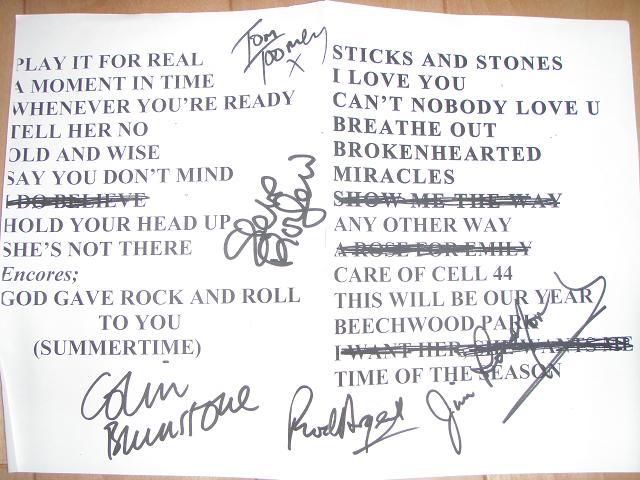 Tom
Toomey
x
PLAY IT FOR REAL
A MOMENT IN TIME
WHENEVER YOU'RE READY
TELL HER NO
OLD AND WISE
SAY YOU DON'T MIND
I DO BELIEVE
HOLD YOUR HEAD UP
SHE'S NOT THERE
Encores;
GOD GAVE ROCK AND ROLL
TO YOU
(SUMMERTIME)
Colin
Blunstone
STICKS AND STONES
I LOVE YOU
CAN'T NOBODY LOVE U
BREATHE OUT
BROKENHEARTED
MIRACLES
SHOW ME THE WAY
ANY OTHER WAY
A ROSE FOR EMILY
CARE OF CELL 44
THIS WILL BE OUR YEAR
BEECHWOOD PARK
I WANT HER, SHE WANTS ME
TIME OF THE SEASON
Rod Argent
Jim Rodford